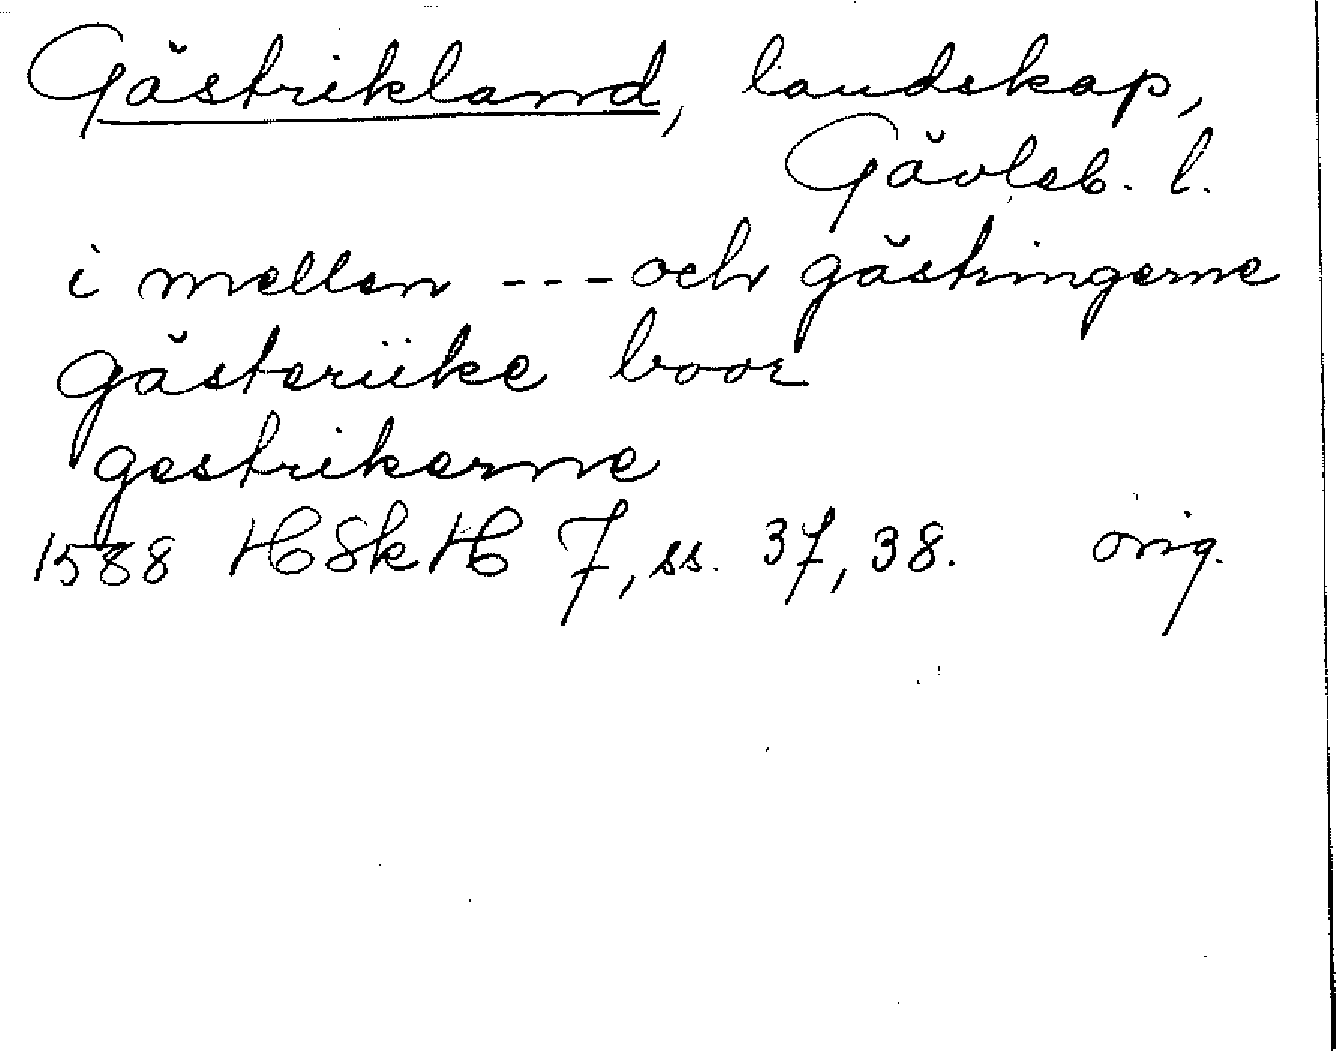 Gästrikland, landskap,
Gävleb. l.
i mellen --- och gästringerne
gästeriike boor
gestrikerne
1588 HSkH 7, ss. 37, 38. orig.